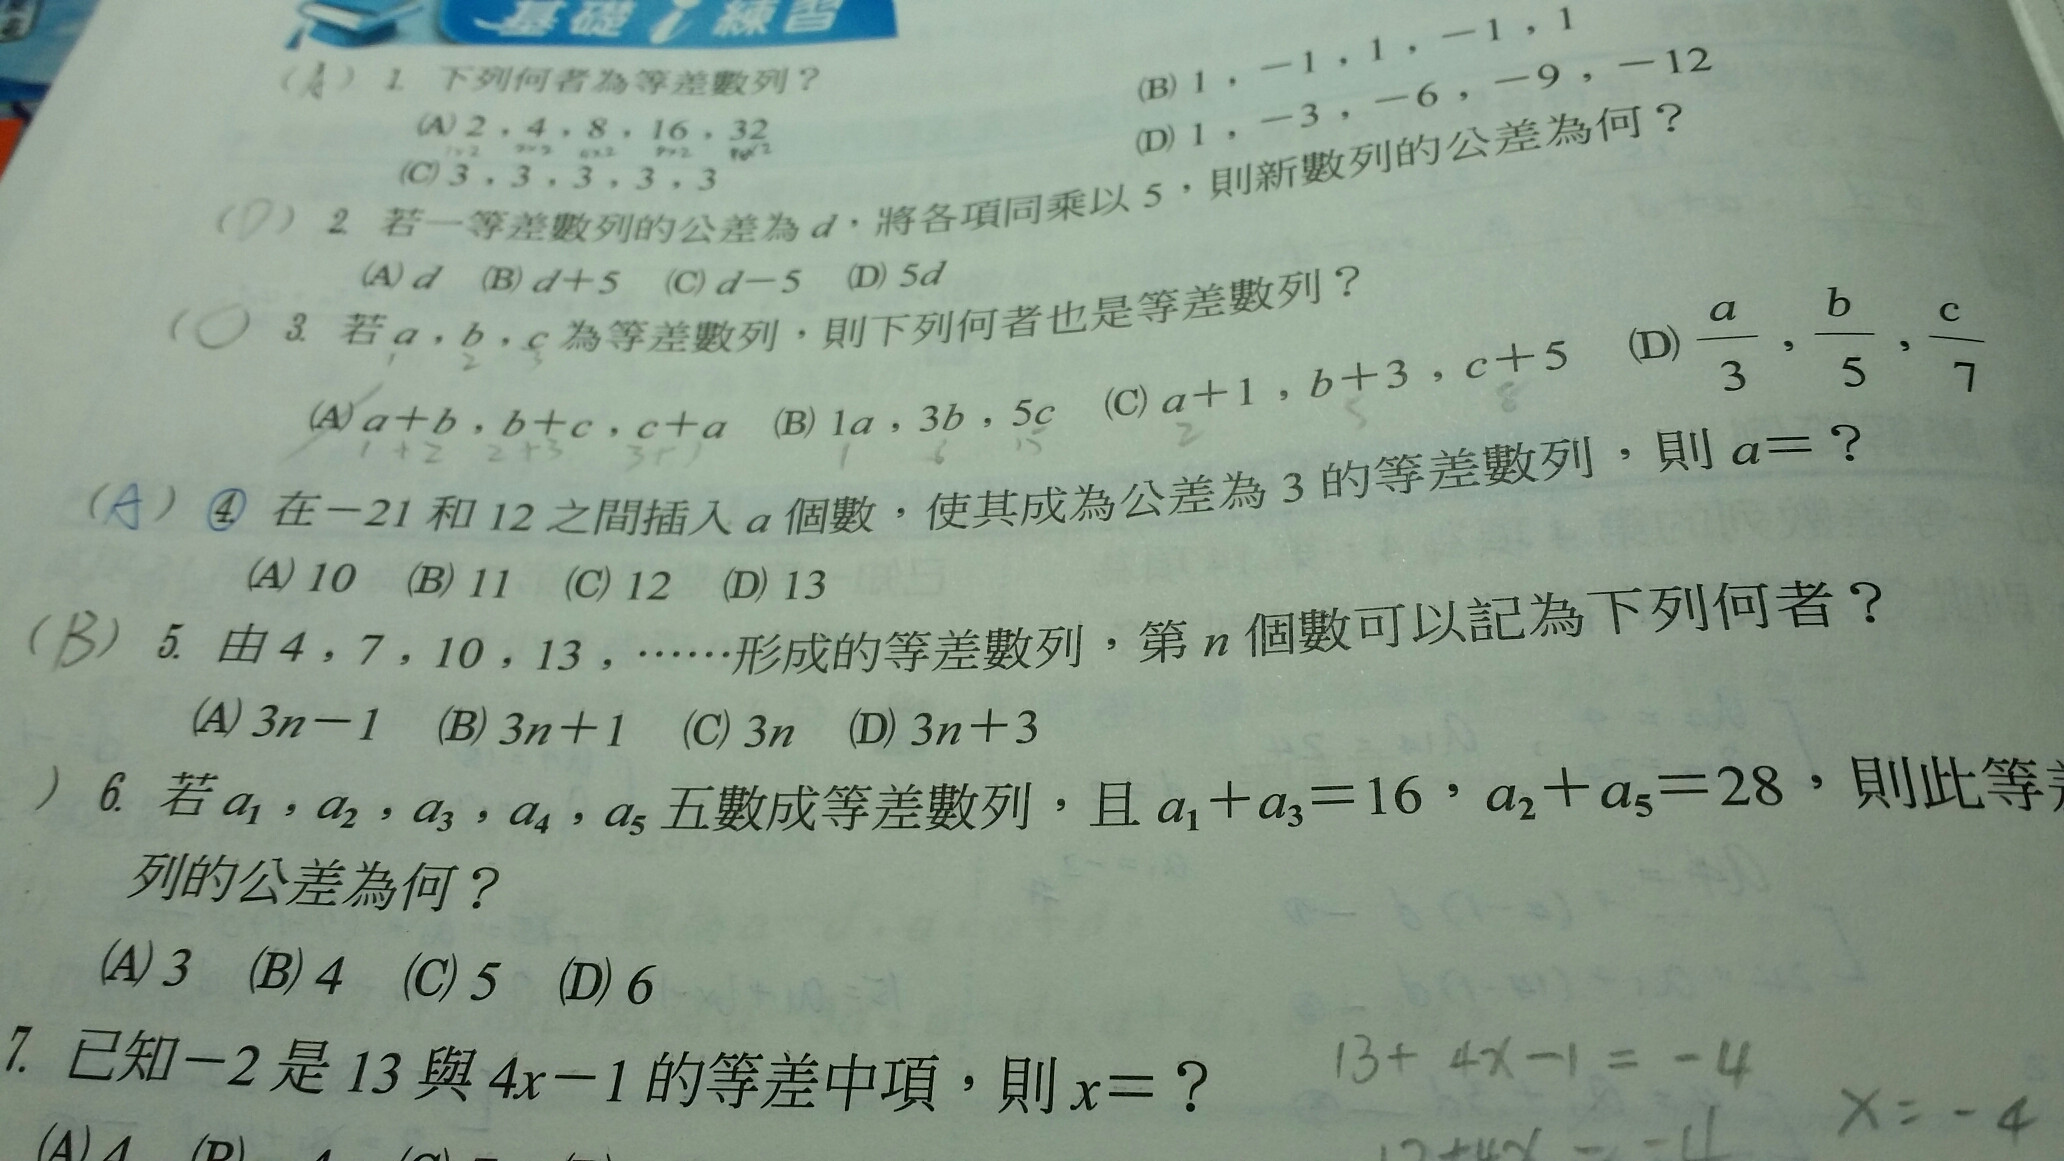 基礎 i 練習
(A) 1. 下列何者為等差數列？
(A) 2，4，8，16，32 (B) 1，－1，1，－1，1
(C) 3，3，3，3，3 (D) 1，－3，－6，－9，－12
(D) 2. 若一等差數列的公差為 d，將各項同乘以 5，則新數列的公差為何？
(A) d (B) d＋5 (C) d－5 (D) 5d
(C) 3. 若 a，b，c 為等差數列，則下列何者也是等差數列？
1 2 3
(A) a＋b，b＋c，c＋a (B) 1a，3b，5c (C) a＋1，b＋3，c＋5 (D) a/3，b/5，c/7
1+2 2+3 3+1 1 6 15 2 5 8
(A) ④ 在－21 和 12 之間插入 a 個數，使其成為公差為 3 的等差數列，則 a＝？
(A) 10 (B) 11 (C) 12 (D) 13
(B) 5. 由 4，7，10，13，……形成的等差數列，第 n 個數可以記為下列何者？
(A) 3n－1 (B) 3n＋1 (C) 3n (D) 3n＋3
) 6. 若 a₁，a₂，a₃，a₄，a₅ 五數成等差數列，且 a₁＋a₃＝16，a₂＋a₅＝28，則此等差
列的公差為何？
(A) 3 (B) 4 (C) 5 (D) 6
7. 已知－2 是 13 與 4x－1 的等差中項，則 x＝？
13+ 4x－1 = －4
x = －4